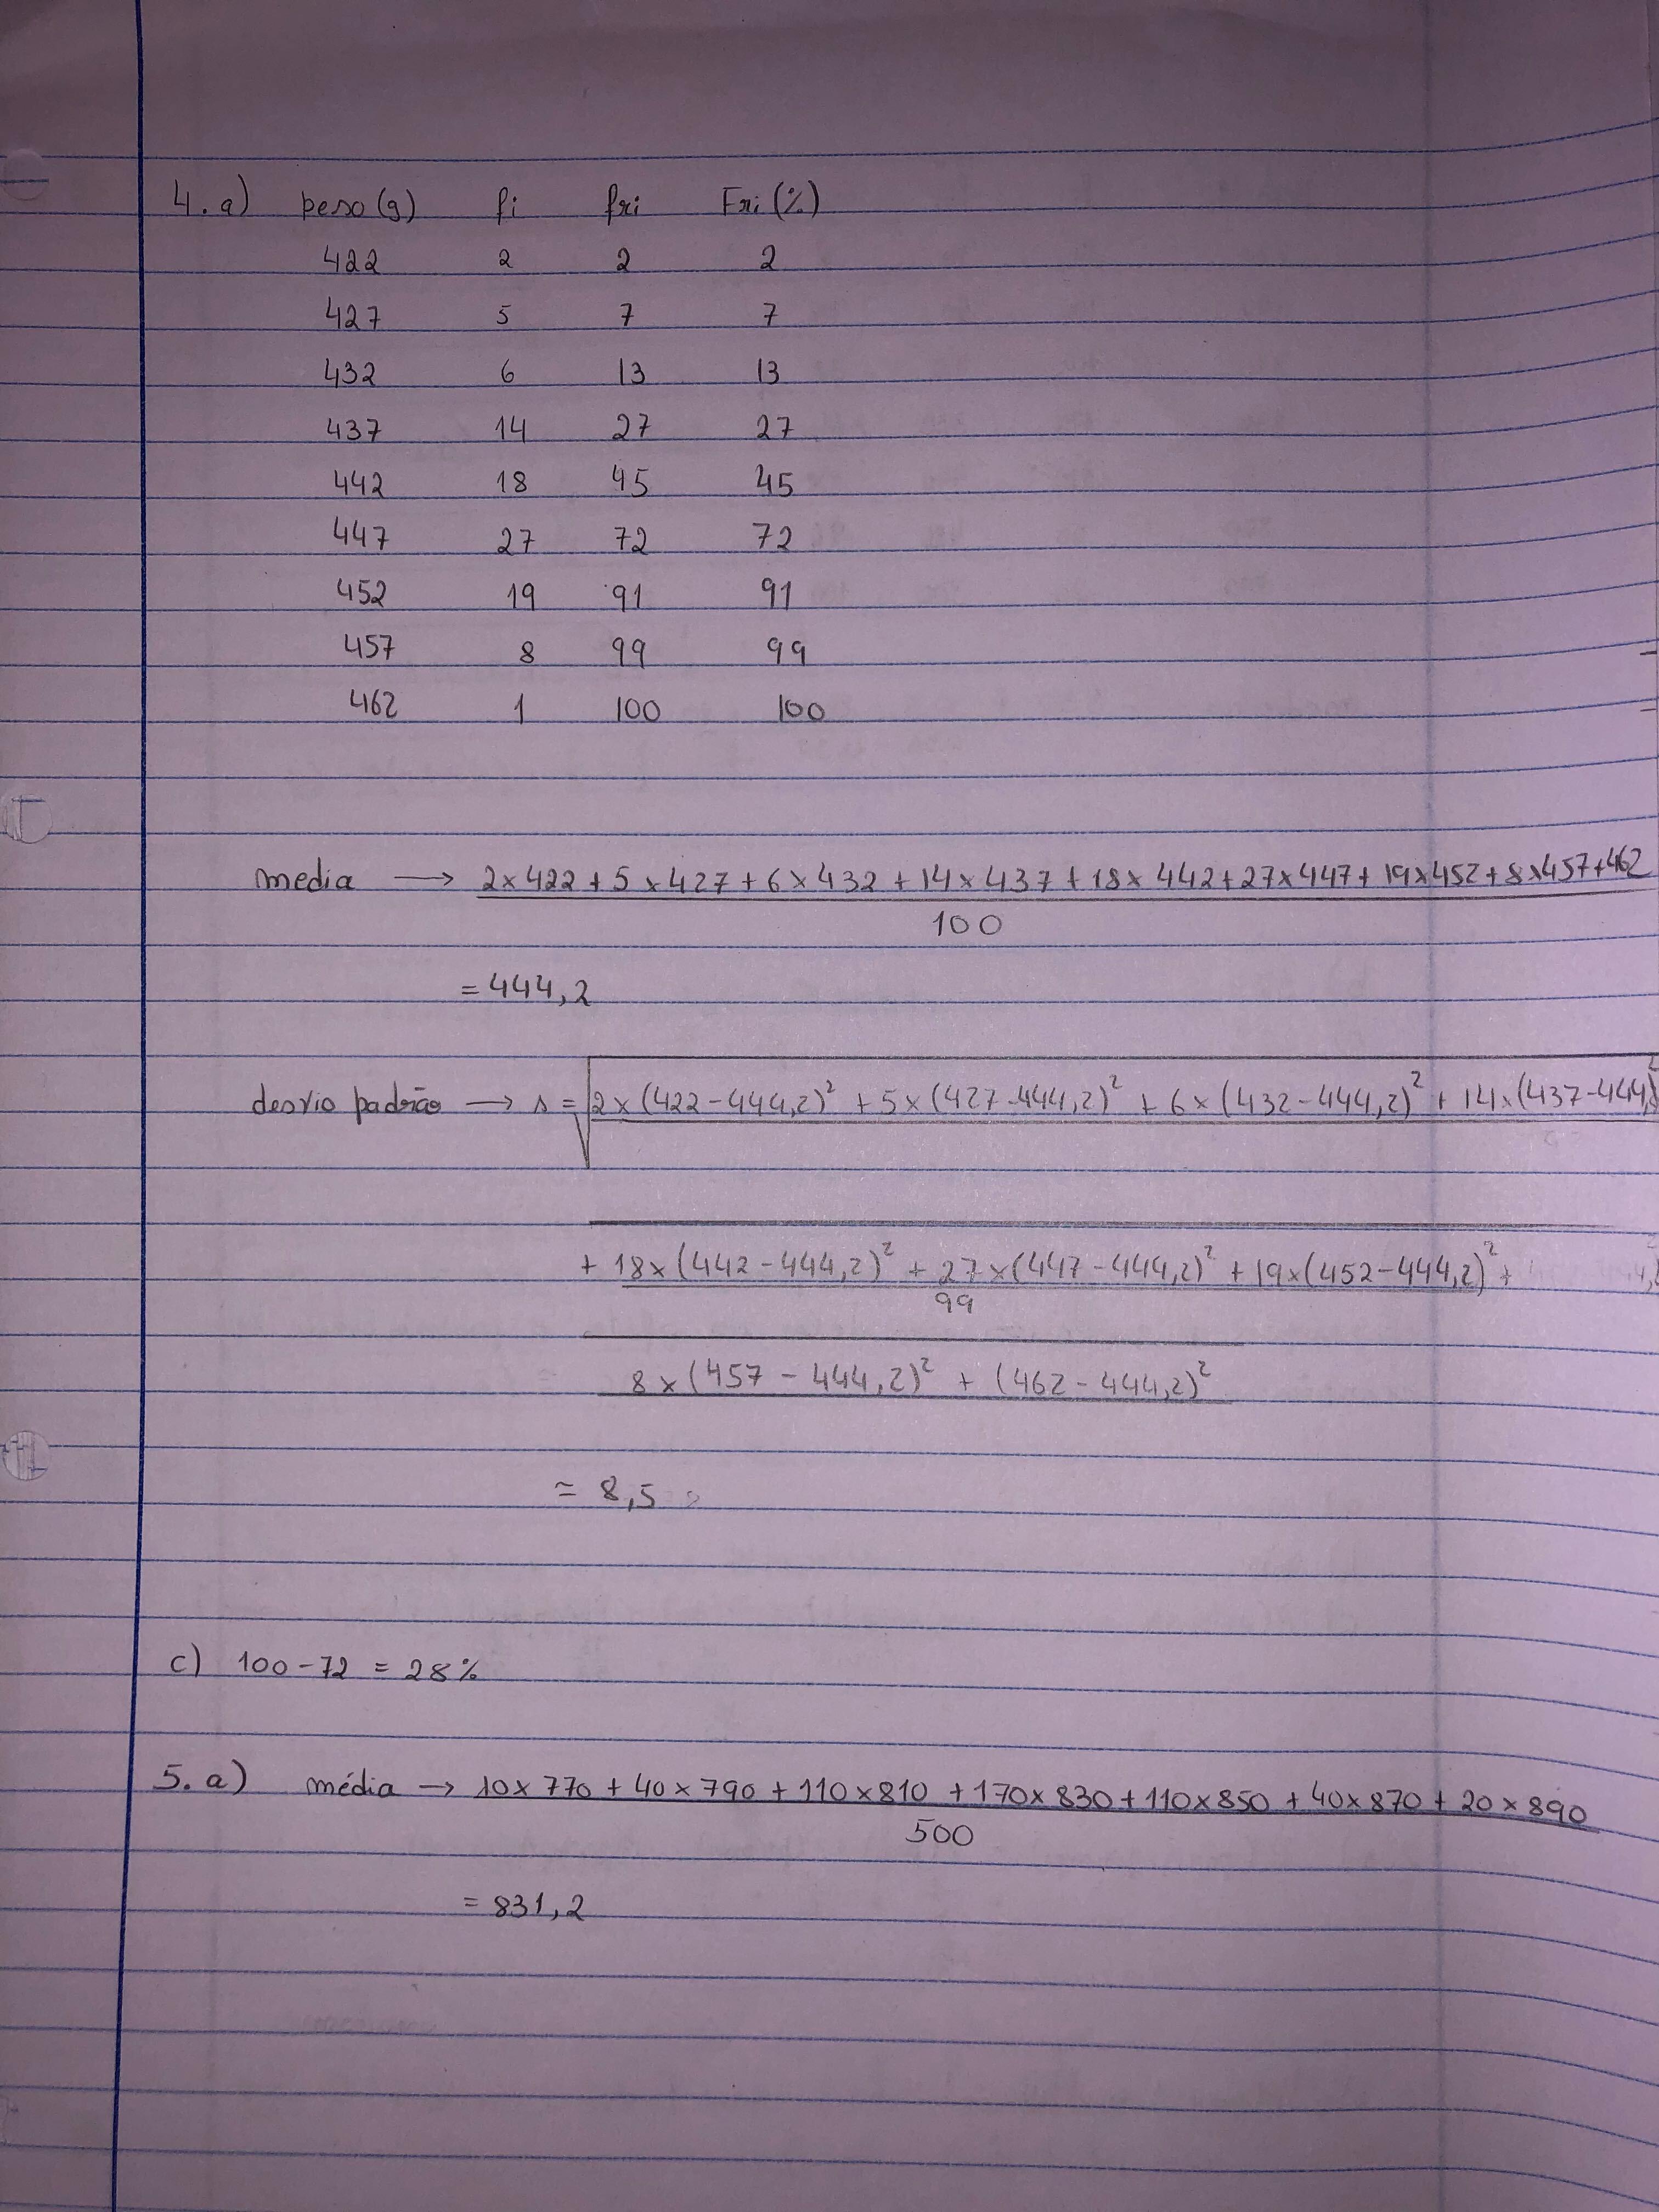 4. a) peso (g) fi fri Fri (%)
422 2 2 2
427 5 7 7
432 6 13 13
437 14 27 27
442 18 45 45
447 27 72 72
452 19 91 91
457 8 99 99
462 1 100 100
media → 2×422 + 5×427 + 6×432 + 14×437 + 18×442 + 27×447 + 19×452 + 8×457 + 462
100
= 444,2
desvio padrão → s = √ 2×(422-444,2)² + 5×(427-444,2)² + 6×(432-444,2)² + 14×(437-444,2)²
+ 18×(442-444,2)² + 27×(447-444,2)² + 19×(452-444,2)² +
99
8×(457-444,2)² + (462-444,2)²
≈ 8,5
c) 100-72 = 28%
5. a) média → 10×770 + 40×790 + 110×810 + 170×830 + 110×850 + 40×870 + 20×890
500
= 831,2